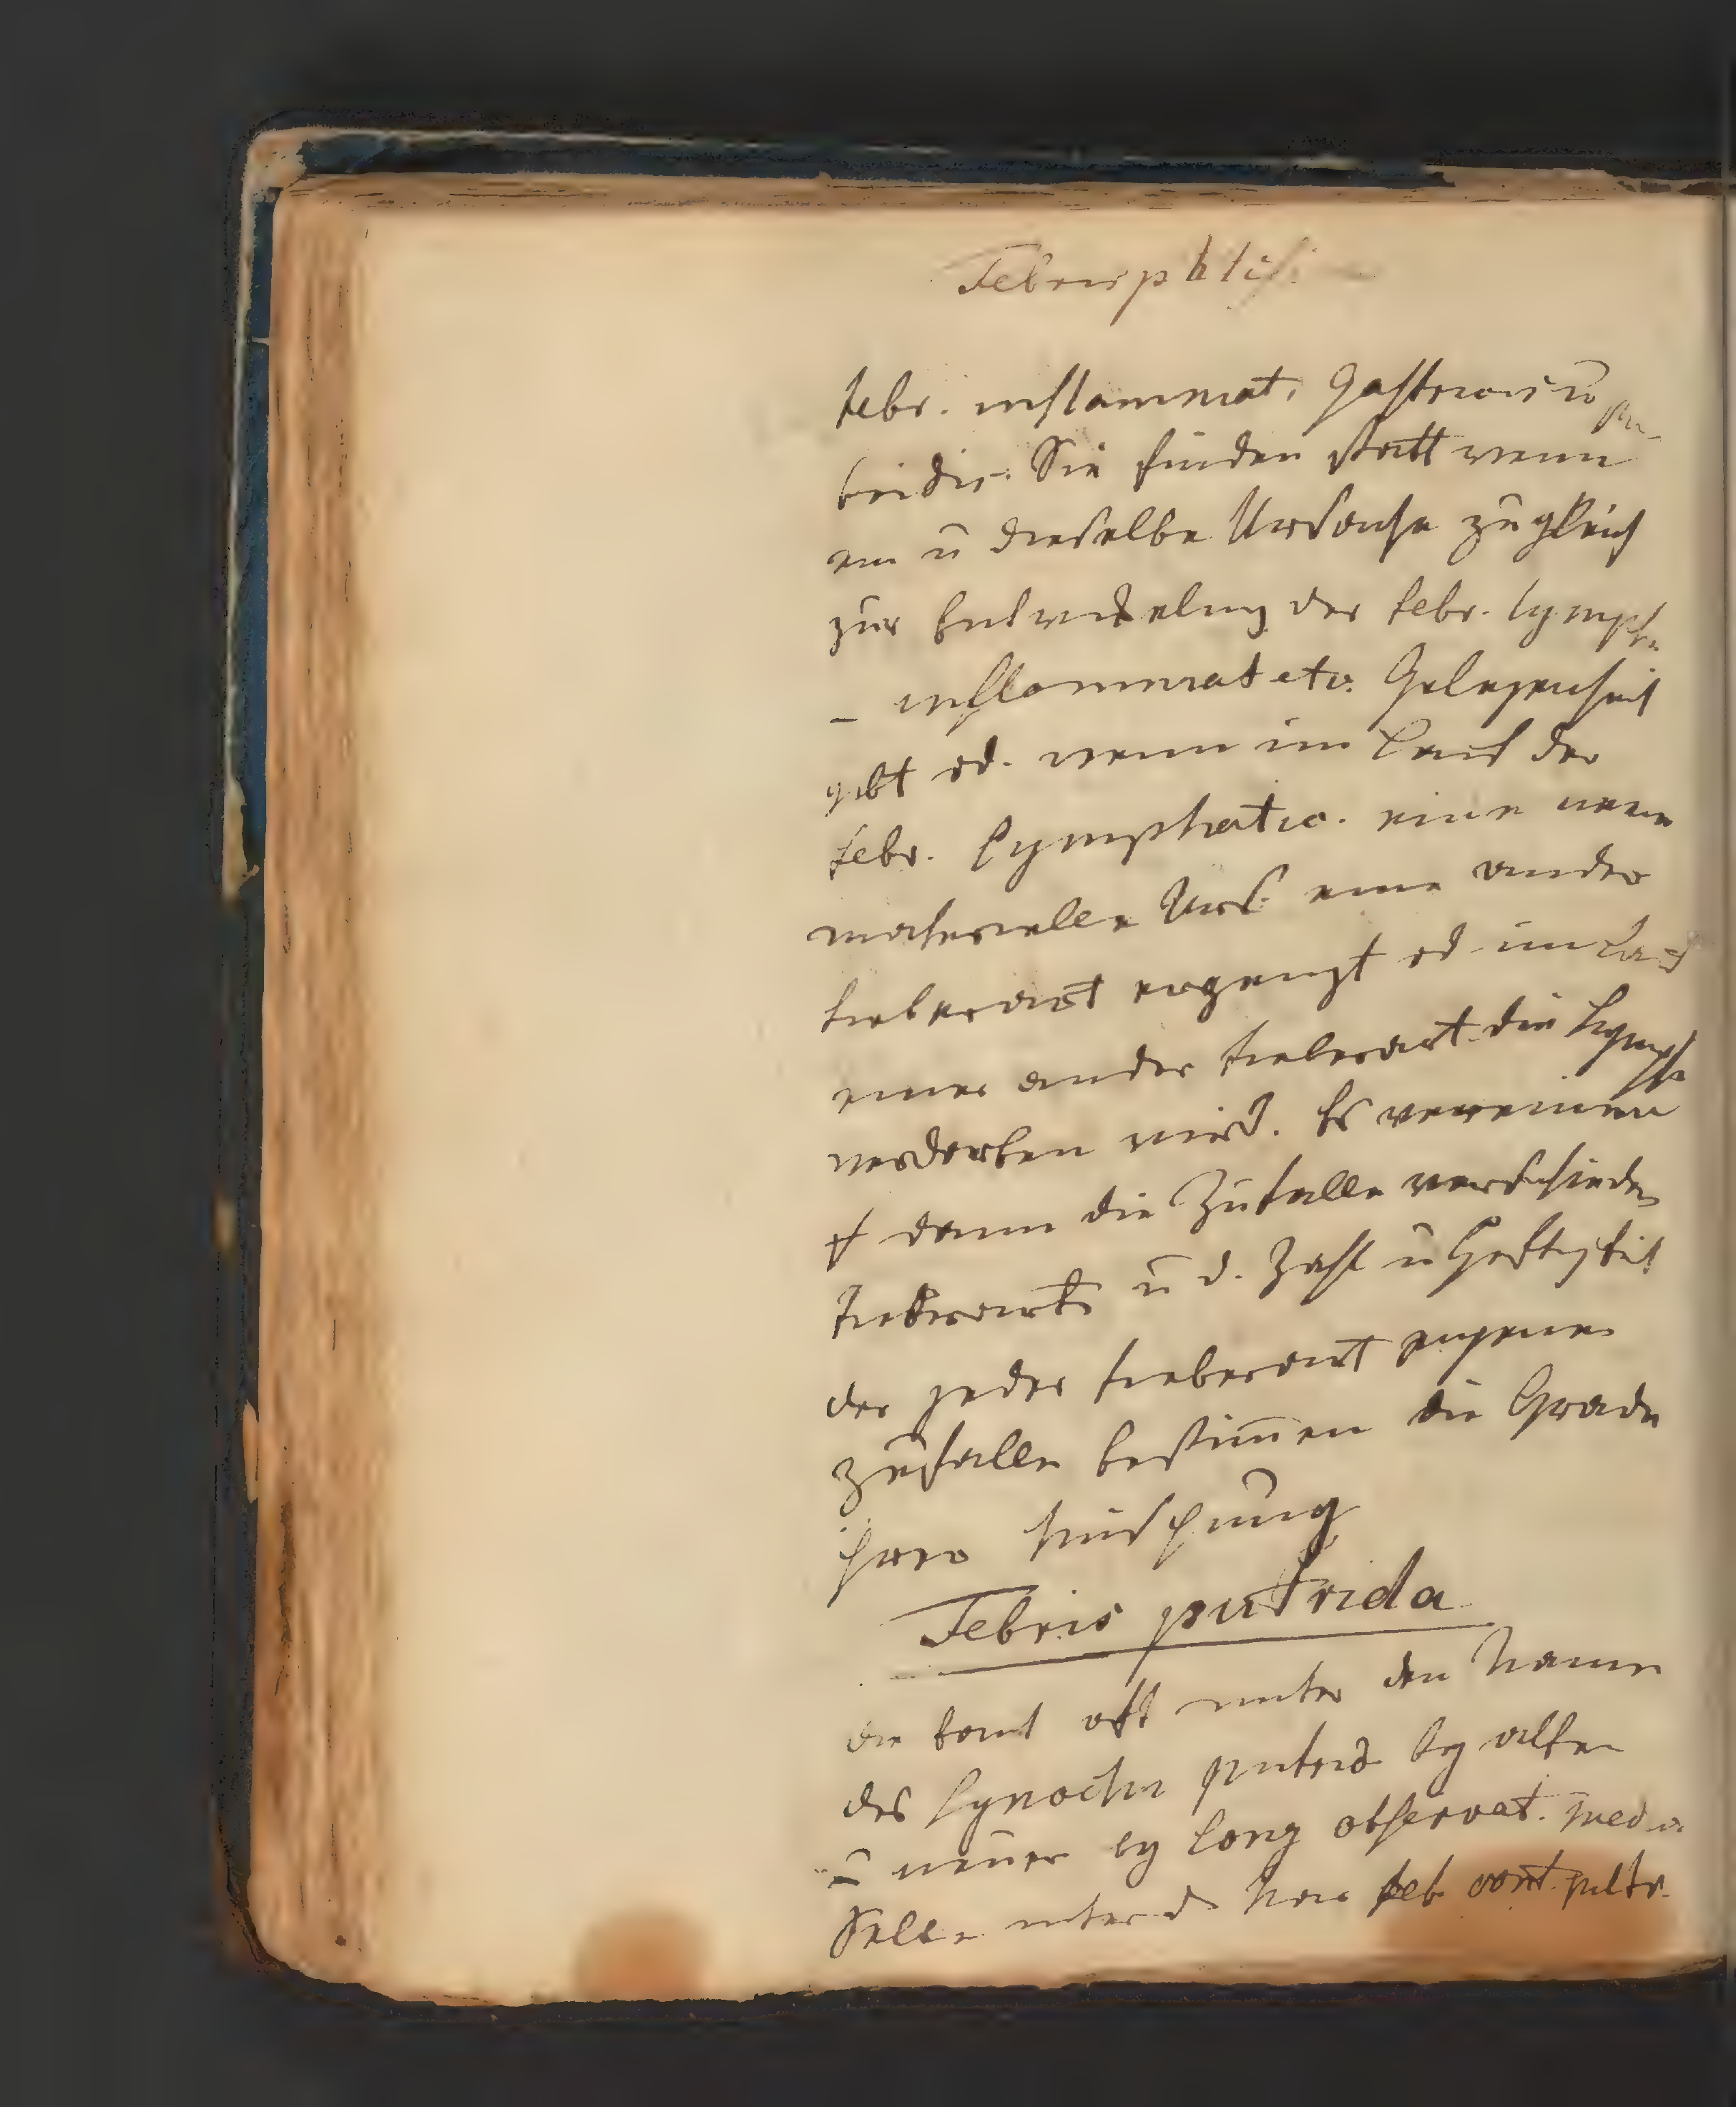 Febris phtis.
febr. inflammat. Gastricis u pu-
tridis. Sie finden statt wenn
ein u dieselbe Ursache zugleich
zur Entwickelung der febr. lympha.
– inflammat etc. Gelegenheit
gibt od. wenn im Lauf der
febr. Lymphatic. eine neue
materielle Urs. eine ander
fieberart erzeugt od im Lauf
einer ander fieberart die Lymphe
verdorben wird. Es vereinen
sich dann die Zufalle verschieden
fieberart u d. Zahl u Heftigkeit
der jeder fieberart eigenen
Zufalle bestim̄en die Grade
ihrer Mischung
Febris putrida
die komt oft unter den Namen
des Synochus putrid by alten
u neuer by observat. med
Selten unter d Nam feb cont. putr.